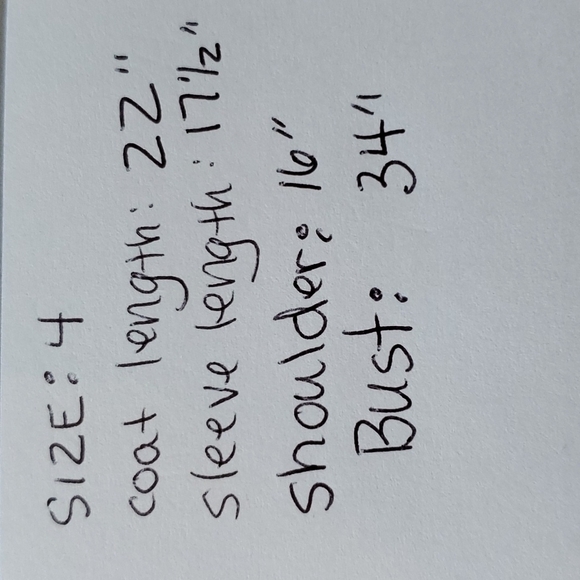 SIZE: 4
coat length: 22"
sleeve length: 17½"
shoulder: 16"
Bust: 34"